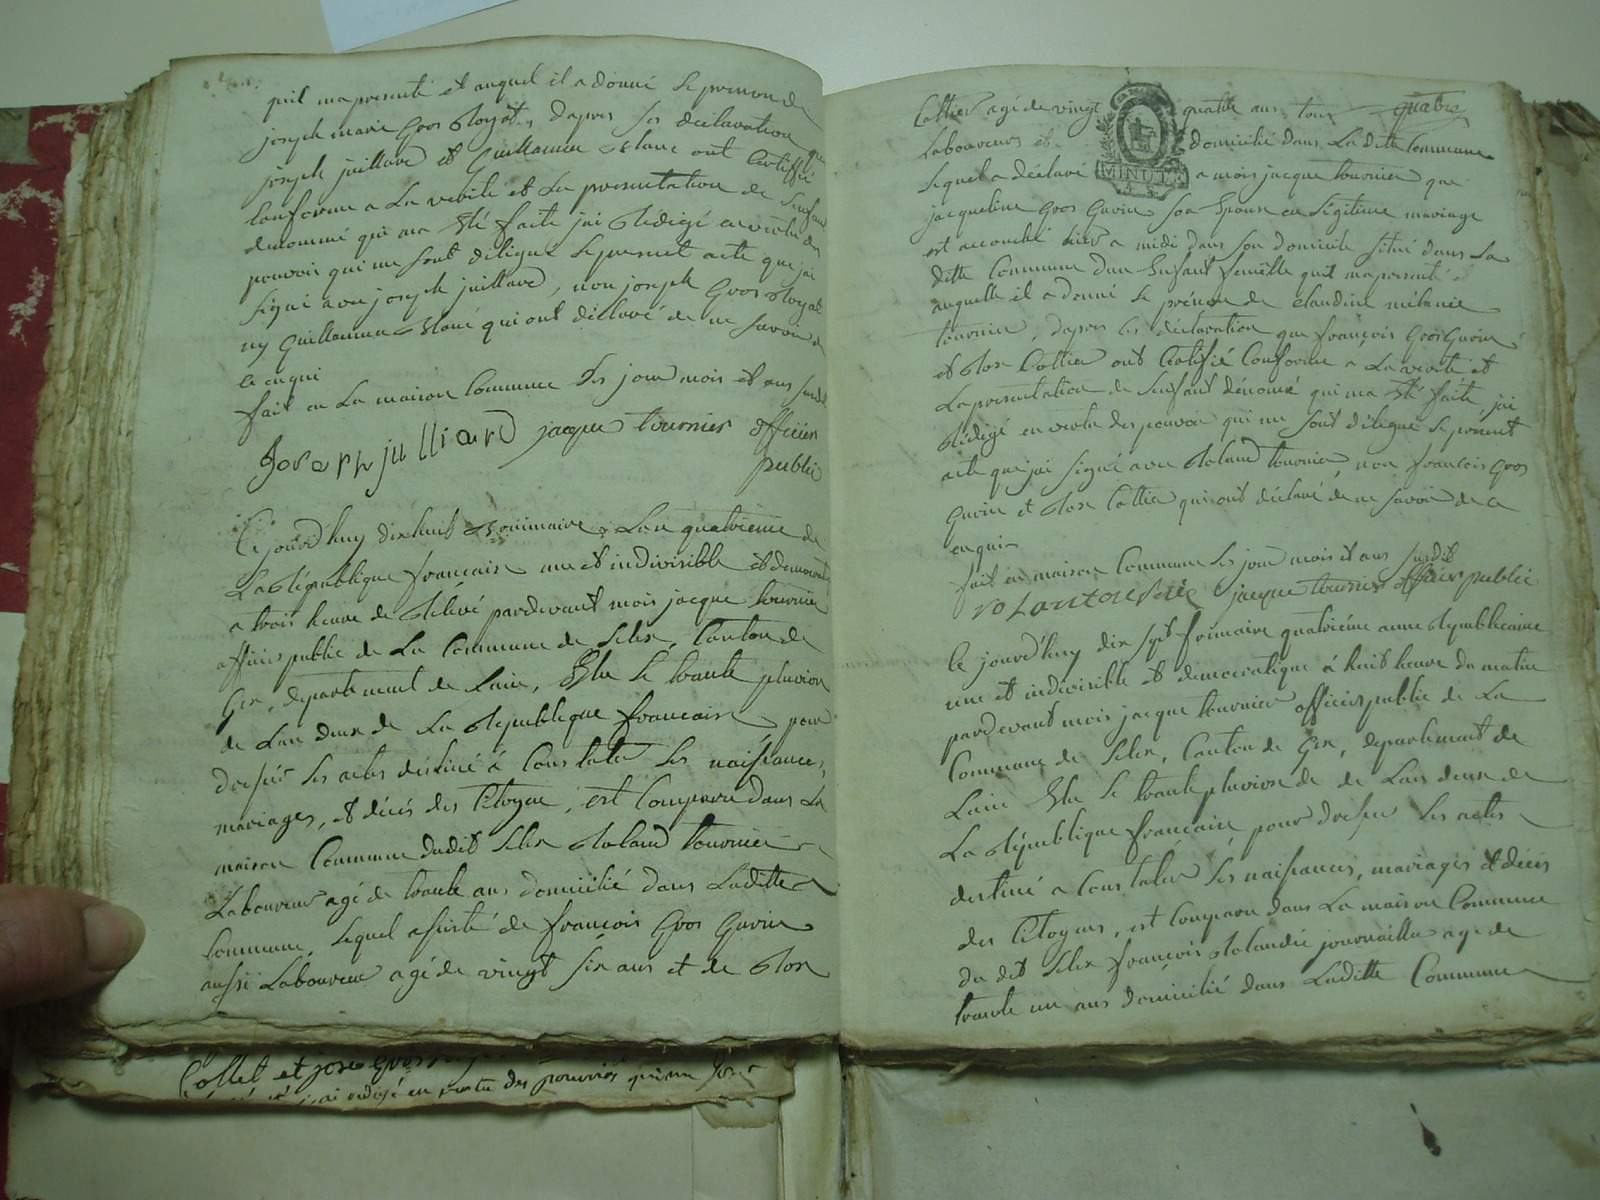 quil ma presenté et auquel il a donné le prenom de
joseph marie Gros Royat, dapres les déclaration que
joseph juillard et Guillaume Blanc ont Certiffié
Conforme a La verité et La presentation de Lenfant
denommé qui ma Eté faite jai Rédigé en vertu des
pouvoir qui me sont délégué Le present acte que jai
signé avec joseph juillard, non joseph Gros Royat
ny Guillaume Blanc qui ont déclaré de ne savoir de
ce enqui
fait en La maison Commune Les jour mois et ans susdit
Joseph juilliard jacque tournier officier
public
Ce jourd'huy dixhuit Brumaire, Lan quatrieme de
La République francaise une et indivisible et démocratique
a trois heure de Relevé pardevant mois jacque tournier
officier public de La Commune de Lelex, Canton de
Gex, departement de Lain, Elu Le trante pluviose
de Lan deux de La Republique francaise pour
dresser Les actes déstiné a Constater Les naissances,
mariages, et décés des Citoyens, est Comparu dans La
maison Commune dudit Lelex Roland tournier
Laboureur agé de trante ans domicilié dans Laditte
Commune, Lequel assisté de françois Gros Gurin
aussi Laboureur agé de vingt six ans et de
Collet et jose Gros
jai rédigé en vertu des pouvoirs qui me sont
quatre
agé de vingt quatre ans tous
Laboureurs et domicilié dans La ditte Commune
Lequel a déclaré a mois jacque tournier que
MINUTE
jacqueline Gros Gurin son Epouse en Légitime mariage
est accouché hier a midi dans son domicile situé dans La
ditte Commune dun Enfant femelle quil ma presenté
auquelle il a donné Le prénom de claudine mélanie
tournier, dapres les déclaration que françois Gros Gurin
et ont Certifié Conforme a La verité et
La presentation de Lenfant dénomé qui ma Eté faite jai
Rédigé en vertu des pouvoir qui me sont délégué Le présent
acte que jai signé avec Roland tournier, non francois Gros
Gurin et qui ont déclaré de ne savoir de ce
enquis
fait en maison Commune Les jour mois et ans susdit
jacque tournier officier public
Ce jourd'huy dix sept frimaire quatriéme anne Republicaine
une et indivisible et democratique á huit heure du matin
pardevant mois jacque tournier officier public de La
Commune de Lelex, Canton de Gex, departement de
Lain Elu Le trante pluviose de de Lan deux de
La République francaise pour dresser Les actes
destiné a Constater Les naissances, mariages et décés
des Citoyens, est Comparu dans La maison Commune
du dit Lelex François journaillier agé de
trante un ans domicilié dans Laditte Commune